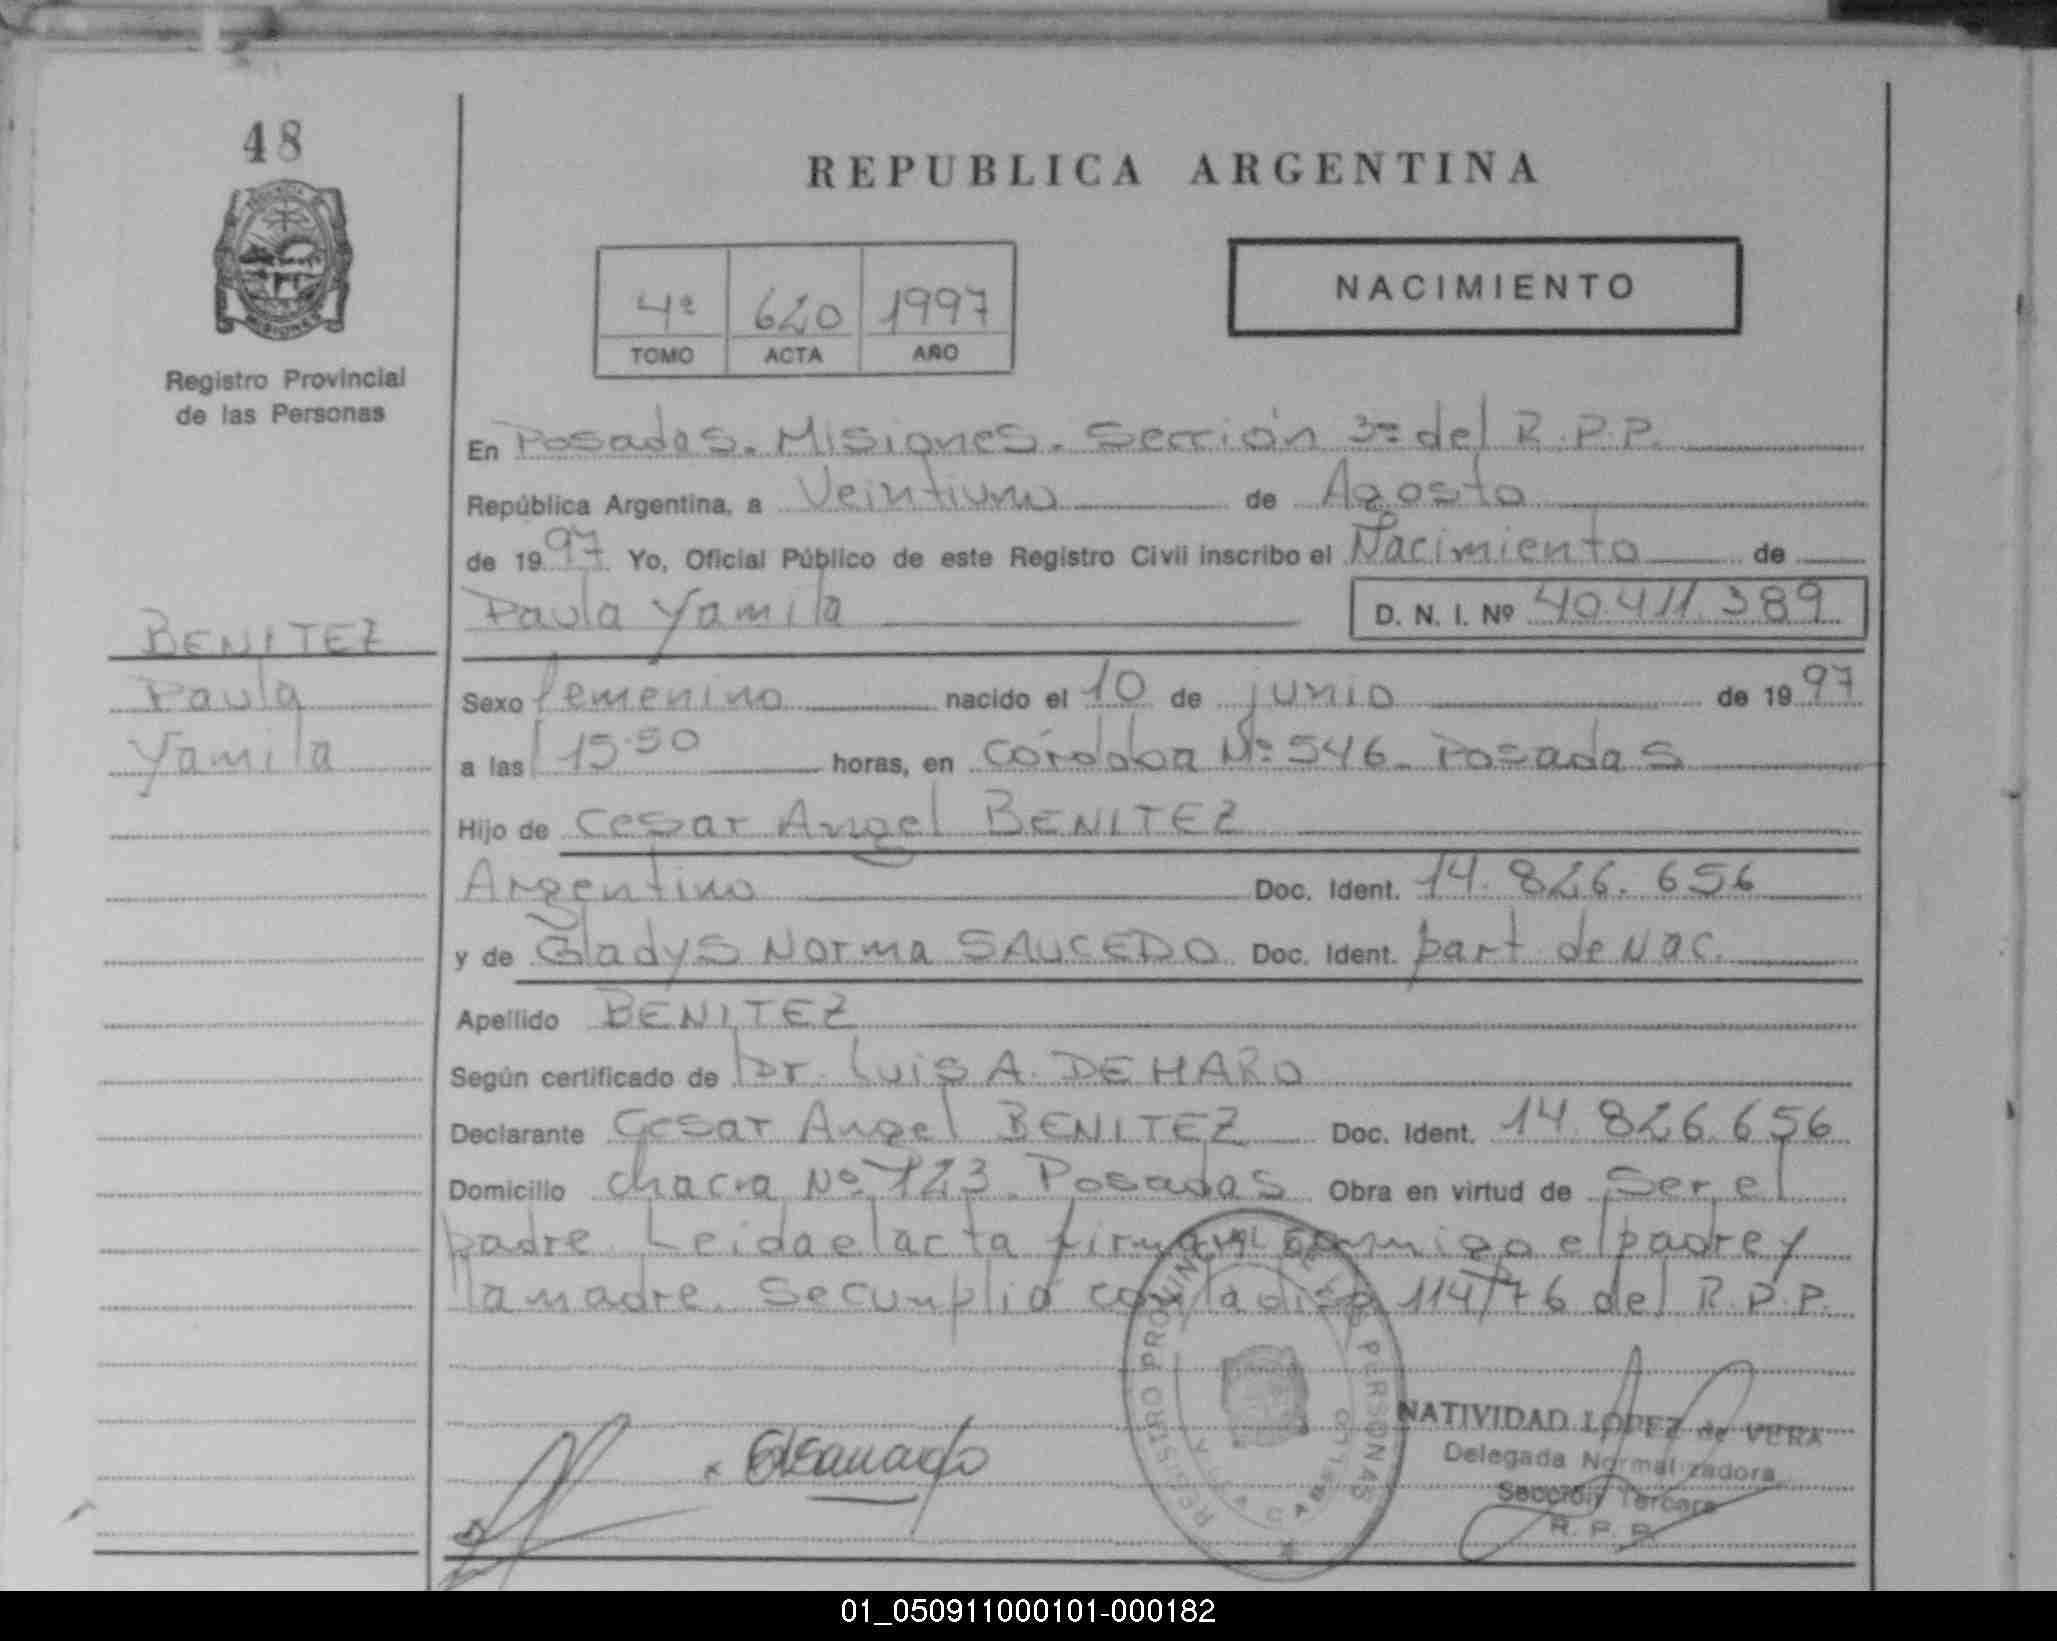 48
REPUBLICA ARGENTINA
NACIMIENTO
4º 620 1997
TOMO ACTA AÑO
MISIONES
Registro Provincial
de las Personas
En Posadas. Misiones. Sección 3º del R.P.P.
República Argentina, a Veintiuno de Agosto
de 1997 Yo, Oficial Público de este Registro Civil inscribo el Nacimiento de
Paula Yamila D. N. I. Nº 40.411.389
BENITEZ
Paula
Yamila
Sexo femenino nacido el 10 de junio de 1997
a las 15.50 horas, en Córdoba Nº 546. Posadas
Hijo de Cesar Angel BENITEZ
Argentino Doc. Ident. 14.826.656
y de Gladys Norma SAUCEDO Doc. Ident. part de Nac.
Apellido BENITEZ
Según certificado de Dr. Luis A. DE HARO
Declarante Cesar Angel BENITEZ Doc. Ident. 14.826.656
Domicilio chacra Nº 123. Posadas Obra en virtud de Ser el
padre. Leida el acta firman conmigo el padre y
la madre. Se cumplió con la disp 114/76 del R.P.P.
REGISTRO PROVINCIAL DE LAS PERSONAS
VILLA CABELLO
NATIVIDAD LOPEZ de VERA
Delegada Normalizadora
Sección Tercera
R. P. P.
01_050911000101-000182